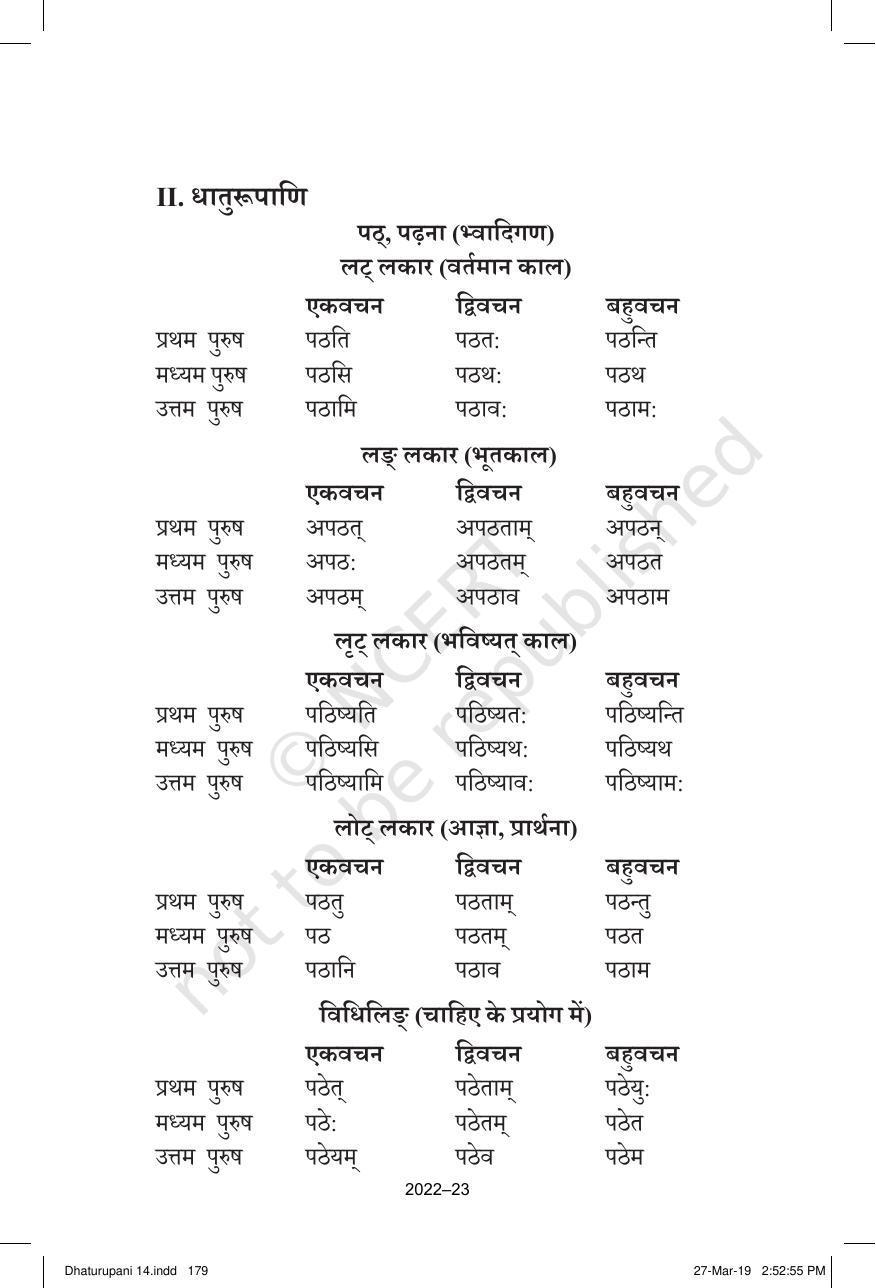 II. धातुरूपाणि
पठ्, पढ़ना (भ्वादिगण)
लट् लकार (वर्तमान काल)
एकवचन द्विवचन बहुवचन
प्रथम पुरुष पठति पठतः पठन्ति
मध्यम पुरुष पठसि पठथः पठथ
उत्तम पुरुष पठामि पठावः पठामः
लङ् लकार (भूतकाल)
एकवचन द्विवचन बहुवचन
प्रथम पुरुष अपठत् अपठताम् अपठन्
मध्यम पुरुष अपठः अपठतम् अपठत
उत्तम पुरुष अपठम् अपठाव अपठाम
लृट् लकार (भविष्यत् काल)
एकवचन द्विवचन बहुवचन
प्रथम पुरुष पठिष्यति पठिष्यतः पठिष्यन्ति
मध्यम पुरुष पठिष्यसि पठिष्यथः पठिष्यथ
उत्तम पुरुष पठिष्यामि पठिष्यावः पठिष्यामः
लोट् लकार (आज्ञा, प्रार्थना)
एकवचन द्विवचन बहुवचन
प्रथम पुरुष पठतु पठताम् पठन्तु
मध्यम पुरुष पठ पठतम् पठत
उत्तम पुरुष पठानि पठाव पठाम
विधिलिङ् (चाहिए के प्रयोग में)
एकवचन द्विवचन बहुवचन
प्रथम पुरुष पठेत् पठेताम् पठेयुः
मध्यम पुरुष पठेः पठेतम् पठेत
उत्तम पुरुष पठेयम् पठेव पठेम
2022–23
Dhaturupani 14.indd 179 27-Mar-19 2:52:55 PM
© NCERT
not to be republished